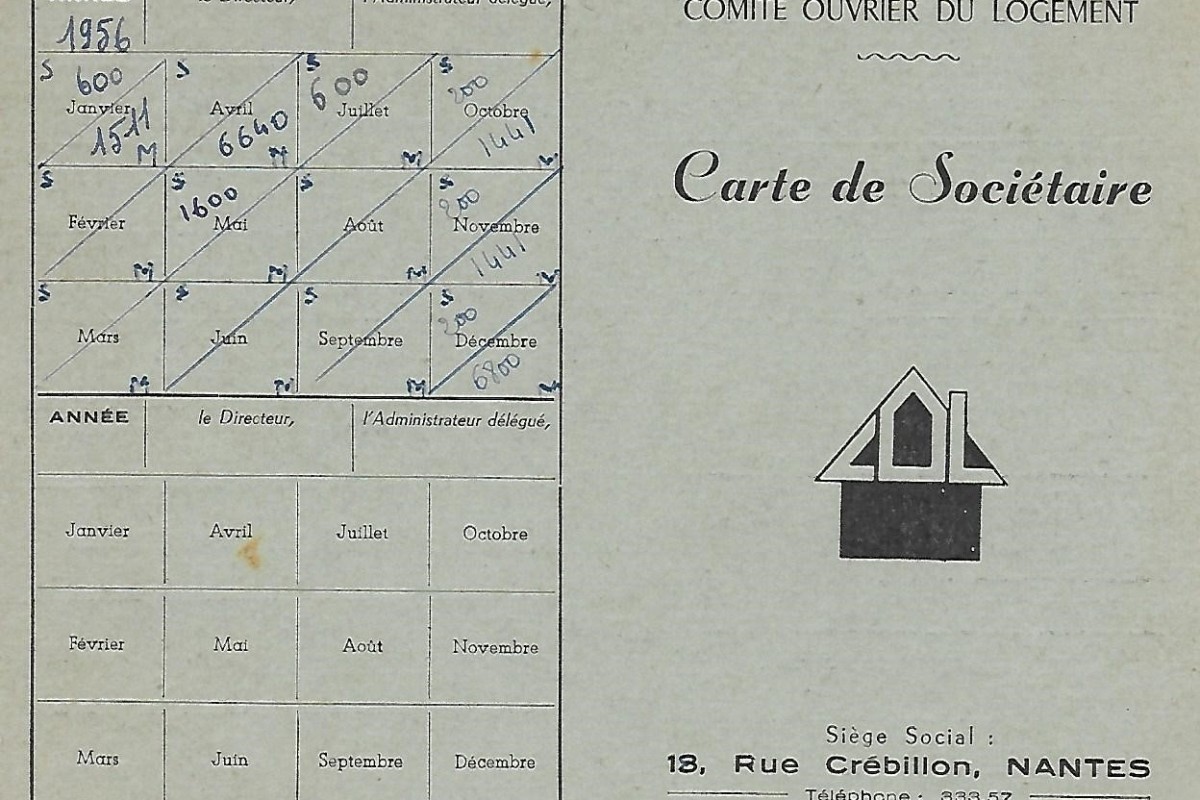 le Directeur,
l'Administrateur délégué,
1956
S S S S
600 600 200
Janvier Avril Juillet Octobre
1511 6640 1441
M M M M
S S S S
1600 200
Février Mai Août Novembre
1441
M M M M
S S S S
200
Mars Juin Septembre Décembre
6800
M M M M
ANNÉE le Directeur, l'Administrateur délégué,
Janvier Avril Juillet Octobre
Février Mai Août Novembre
Mars Juin Septembre Décembre
COMITÉ OUVRIER DU LOGEMENT
Carte de Sociétaire
COL
Siège Social :
18, Rue Crébillon, NANTES
Téléphone : 333.57